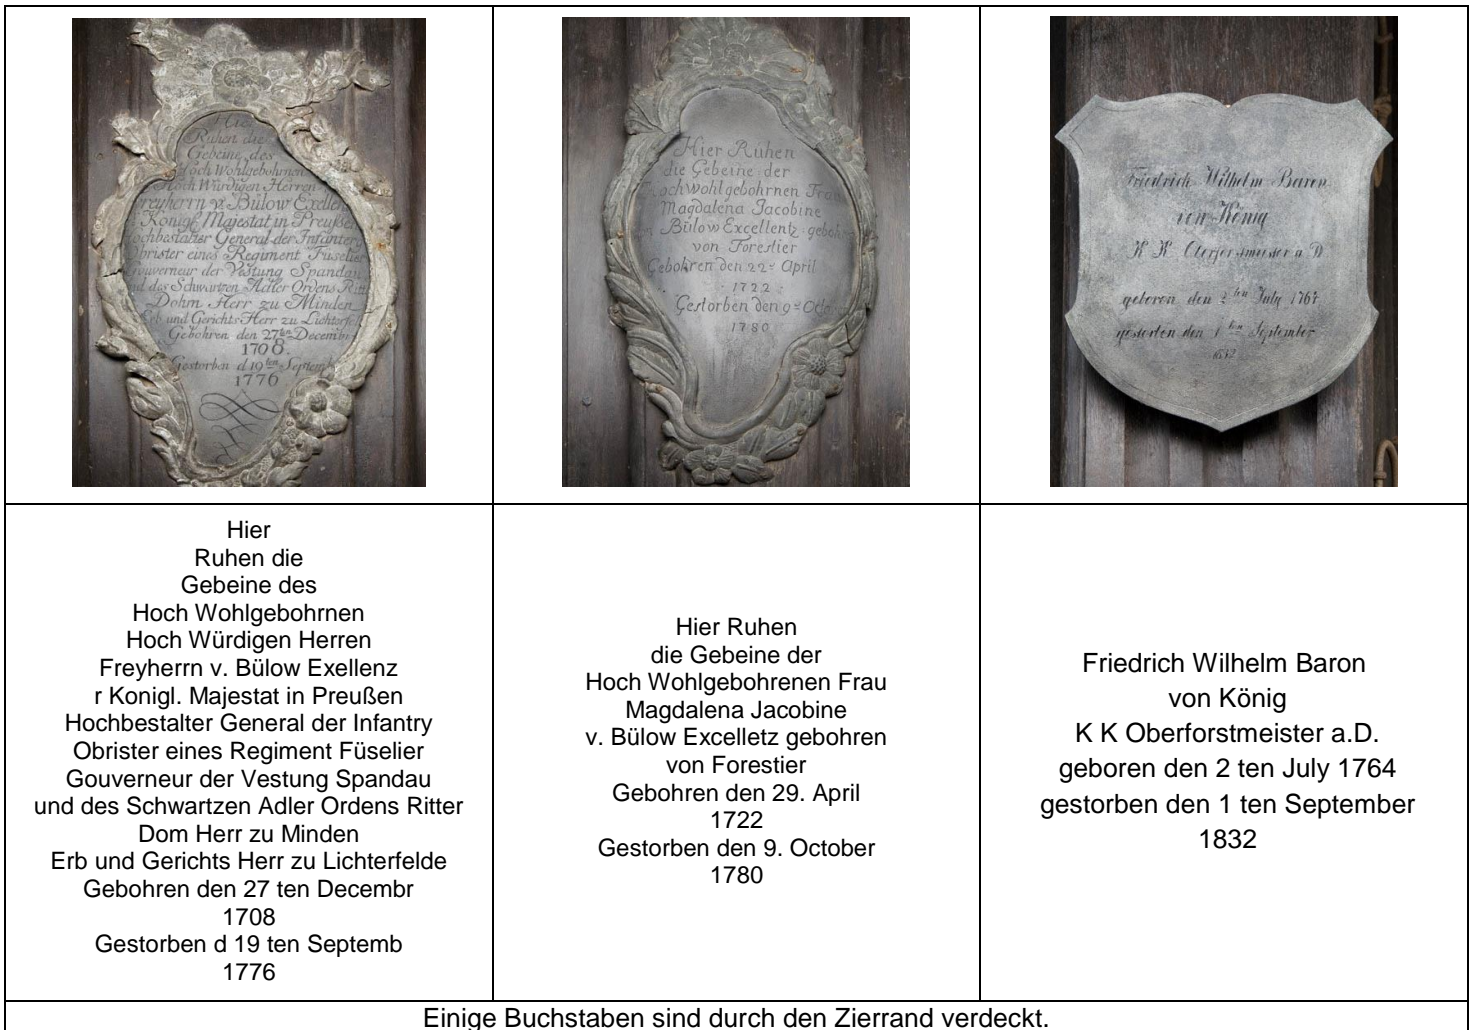 Hie
Ruhen die
Gebeine des
Hoch Wohlgebohrnen
Hoch Würdigen Herren
Freyherrn v. Bülow Exellen
Königl. Majestat in Preußen
ochbestalter General der Infantery
brister eines Regiment Füselier
Gouverneur der Vestung Spandau
nd des Schwartzen Adler Ordens Ritt
Dohm Herr zu Minden
Erb und Gerichts Herr zu Lichterfel
Gebohren den 27ten Decembr
1708.
Gestorben d 19ten Septemb
1776
Hier Ruhen
die Gebeine der
hochwohlgebohrnen Frau
Magdalena Jacobine
Bülow Excellentz gebohr
von Forestier
Gebohren den 22 April
1722
Gestorben den 9 Octo
1780
Friedrich Wilhelm Baron
von König
K K Oberforstmeister a D
geboren den 2ten July 1764
gestorben den 1ten September
1832
Hier
Ruhen die
Gebeine des
Hoch Wohlgebohrnen
Hoch Würdigen Herren
Freyherrn v. Bülow Exellenz
r Konigl. Majestat in Preußen
Hochbestalter General der Infantry
Obrister eines Regiment Füselier
Gouverneur der Vestung Spandau
und des Schwartzen Adler Ordens Ritter
Dom Herr zu Minden
Erb und Gerichts Herr zu Lichterfelde
Gebohren den 27 ten Decembr
1708
Gestorben d 19 ten Septemb
1776
Hier Ruhen
die Gebeine der
Hoch Wohlgebohrenen Frau
Magdalena Jacobine
v. Bülow Excelletz gebohren
von Forestier
Gebohren den 29. April
1722
Gestorben den 9. October
1780
Friedrich Wilhelm Baron
von König
K K Oberforstmeister a.D.
geboren den 2 ten July 1764
gestorben den 1 ten September
1832
Einige Buchstaben sind durch den Zierrand verdeckt.